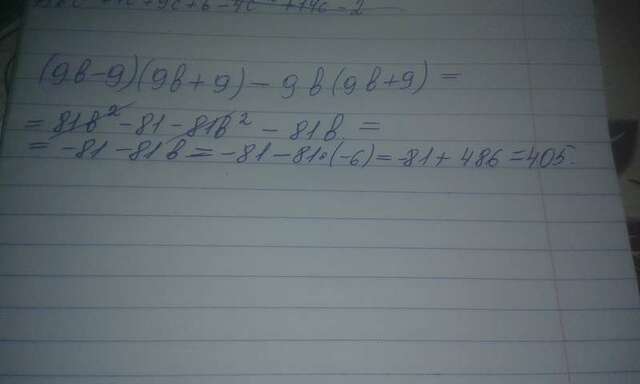 (9b-9)(9b+9)-9b(9b+9)=
=81b²-81-81b²-81b=
=-81-81b=-81-81·(-6)=-81+486=405.